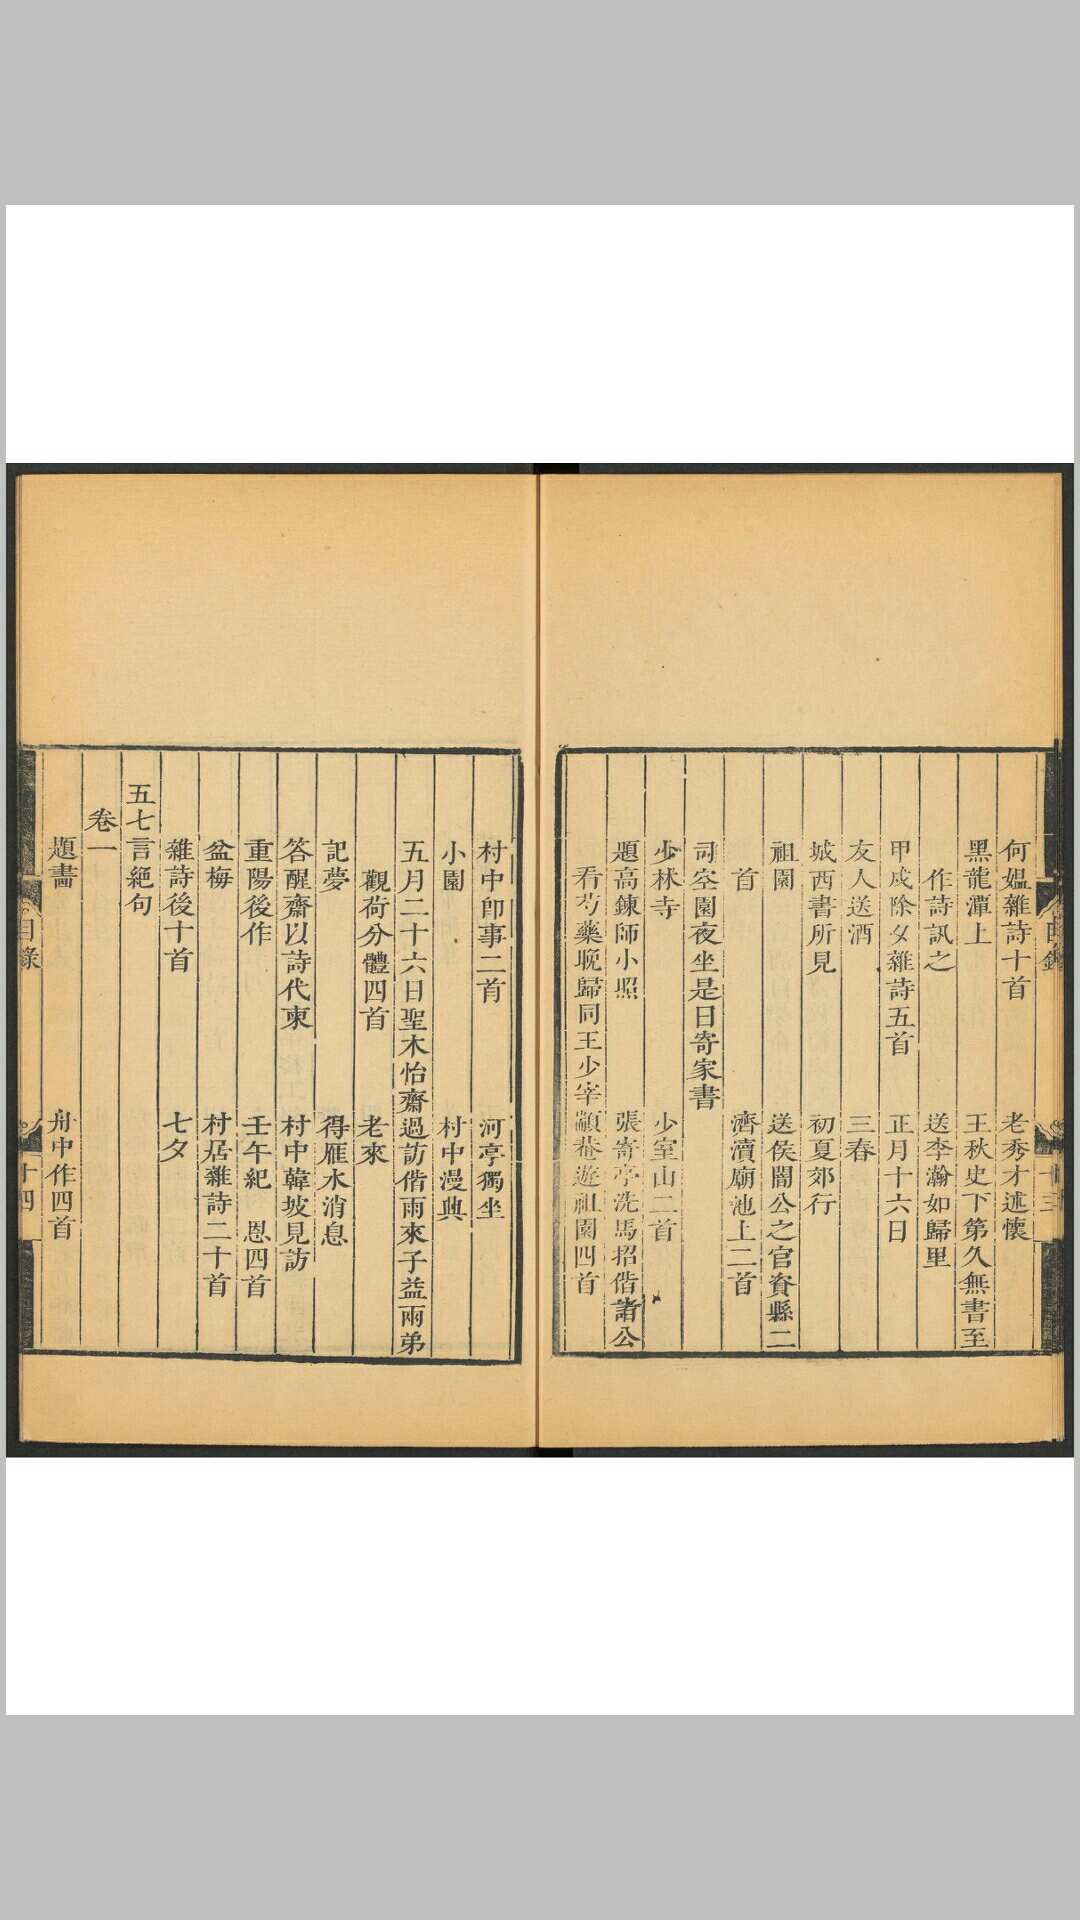 何媼雜詩十首　老秀才述懷
黑龍潭上　王秋史下第久無書至
作詩訊之　送李瀚如歸里
甲戌除夕雜詩五首　正月十六日
友人送酒　三春
城西書所見　初夏郊行
祖園　送侯闇公之官資縣二
首　濟瀆廟池上二首
司空園夜坐是日寄家書
少林寺　少室山二首
題高鍊師小照　張寄亭洗馬招偕諸公
看芍藥晚歸同王少宰顓菴遊祖園四首
目錄
十三
村中卽事二首　河亭獨坐
小園　村中漫興
五月二十六日聖木怡齋過訪偕雨來子益兩弟
觀荷分體四首　老來
記夢　得雁水消息
答醒齋以詩代柬　村中韓坡見訪
重陽後作　壬午紀　恩四首
盆梅　村居雜詩二十首
雜詩後十首　七夕
五七言絕句
卷一
題畫　舟中作四首
目錄
十四